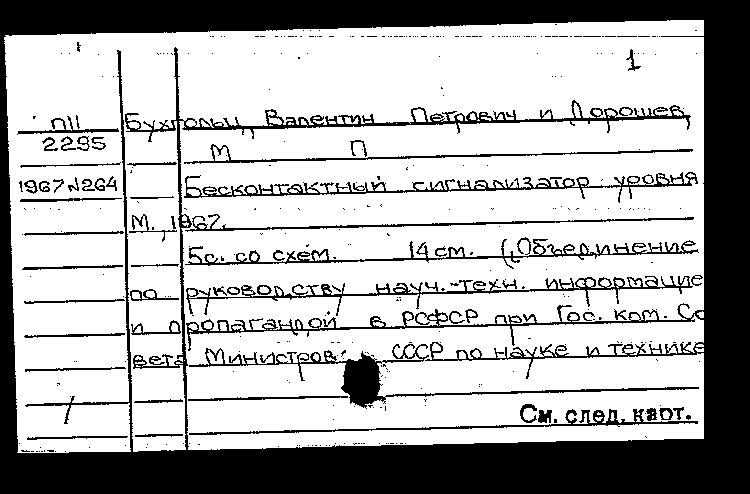 1
П11 Бухгольц, Валентин Петрович и Дорошев,
2295 М П
1967 N264 Бесконтактный сигнализатор уровня
М., 1967.
5с. со схем. 14 см. (Объединение
по руководству науч.-техн. информацие
и пропагандой в РСФСР при Гос. ком. Со
вета Министров СССР по науке и технике
См. след. карт.